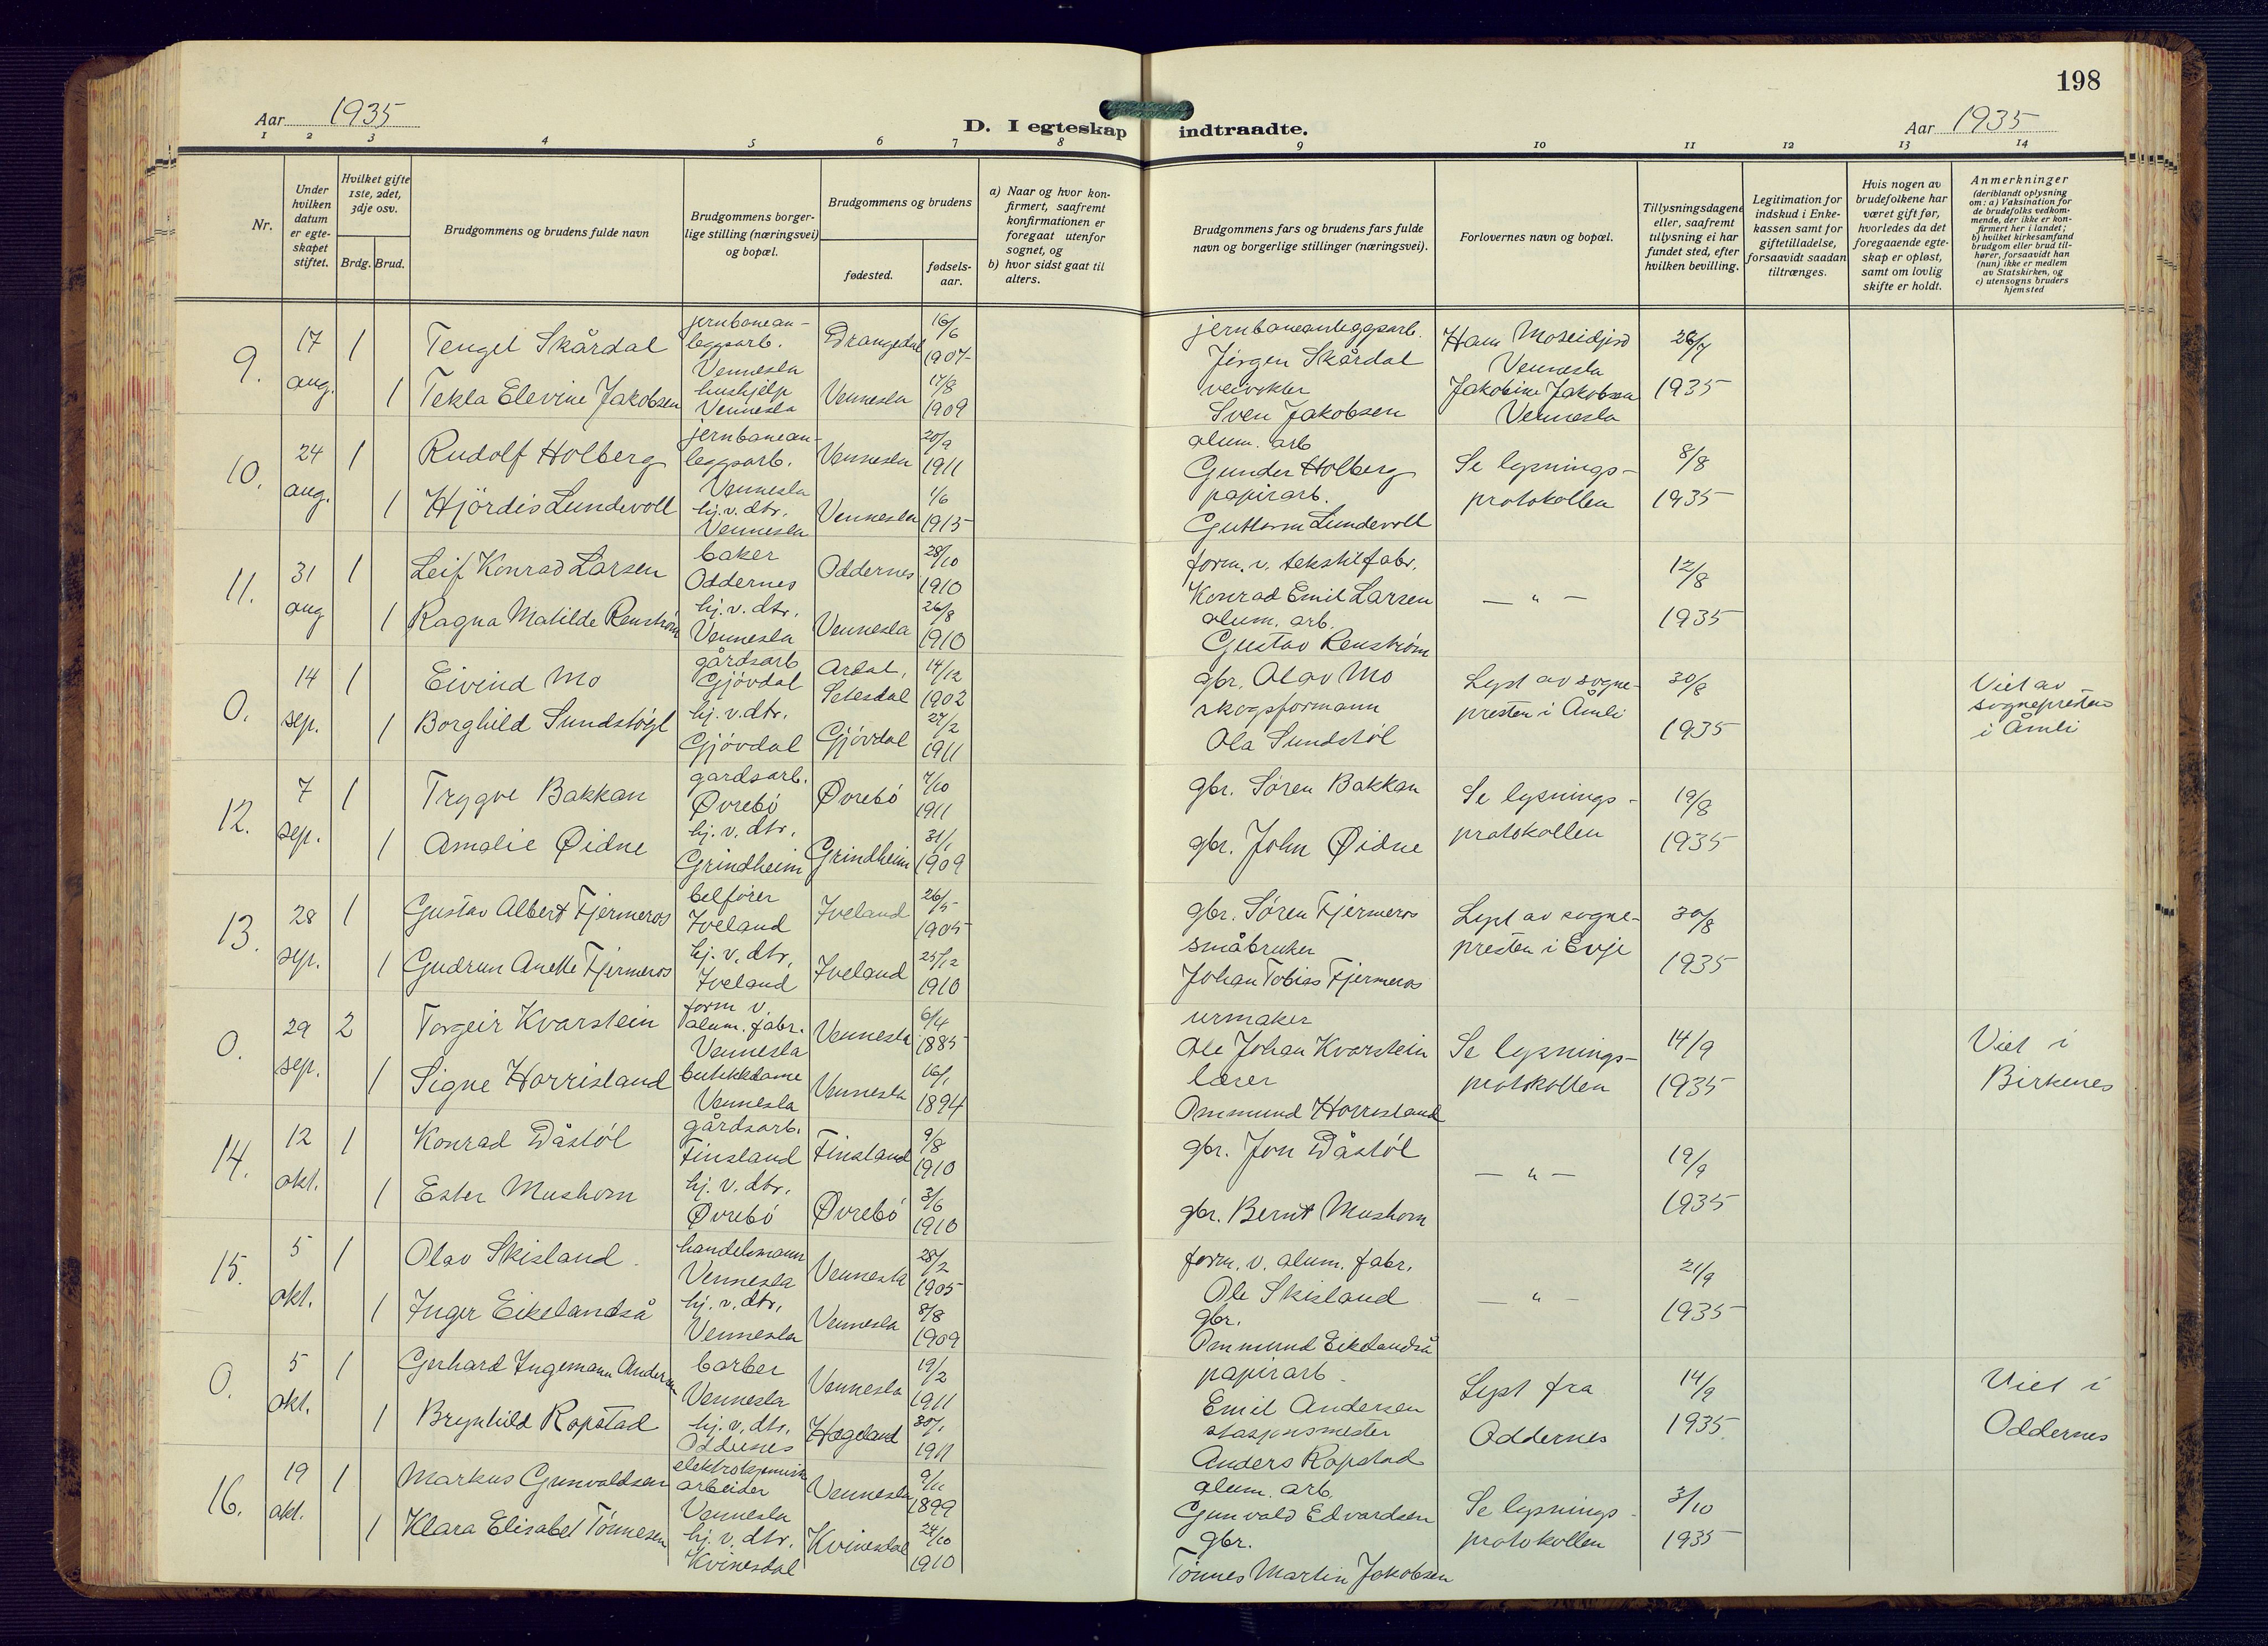 198
Aar 1935
D. I egteskap indtraadte.
Aar 1935
1 2 3 4 5 6 7 8 9 10 11 12 13 14
Nr.
Under hvilken datum er egteskapet stiftet.
Hvilket gifte 1ste, 2det, 3dje osv.
Brdg. Brud.
Brudgommens og brudens fulde navn
Brudgommens borgerlige stilling (næringsvei) og bopæl.
Brudgommens og brudens
fødested.
fødselsaar.
a) Naar og hvor konfirmert, saafremt konfirmationen er foregaat utenfor sognet, og
b) hvor sidst gaat til alters.
Brudgommens fars og brudens fars fulde navn og borgerlige stillinger (næringsvei).
Forlovernes navn og bopæl.
Tillysningsdagene eller, saafremt tillysning ei har fundet sted, efter hvilken bevilling.
Legitimation for indskud i Enkekassen samt for giftetilladelse, forsaavidt saadan tiltrænges.
Hvis nogen av brudefolkene har været gift før, hvorledes da det foregaaende egteskap er opløst, samt om lovlig skifte er holdt.
Anmerkninger (deriblandt oplysning om: a) Vaksination for de brudefolks vedkommende, der ikke er konfirmert her i landet; b) hvilket kirkesamfund brudgom eller brud tilhører, forsaavidt han (hun) ikke er medlem av Statskirken, og c) utensogns bruders hjemsted
9. 17 aug. 1 Tengel Skårdal jernbaneanleggsarb. Vennesla Drangedal 16/6 1907 jernbaneanleggsarb. Jørgen Skårdal Hans Moseidjord Vennesla 26/7 1935
1 Tekla Elevine Jakobsen hushjelp Vennesla Vennesla 17/8 1909 veivokter Sven Jakobsen Jakobine Jakobsen Vennesla
10. 24 aug. 1 Rudolf Holberg jernbaneanleggsarb. Vennesla Vennesla 20/9 1911 alum. arb Gunder Holberg Se lysningsprotokollen 8/8 1935
1 Hjördis Lundevoll hj. v. dtr. Vennesla Vennesla 1/6 1915 papirarb. Guttorm Lundevoll
11. 31 aug 1 Leif Konrad Larsen baker Oddernes Oddernes 28/10 1910 form. v. tekstilfabr. Konrad Emil Larsen — " — 12/8 1935
1 Ragna Matilde Renström hj. v. dtr. Vennesla Vennesla 26/8 1910 alum. arb. Gustav Renström
0. 14 sep. 1 Eivind Mo gårdsarb Gjövdal Ardal, Setesdal 14/12 1902 gbr. Olav Mo Lyst av sognepresten i Åmli 30/8 1935 Viet av sognepresten i Åmli
1 Borghild Sundstøyl hj. v. dtr. Gjövdal Gjövdal 27/2 1911 skogsformann Ola Sundstöl
12. 7 sep. 1 Trygve Bakkan gardsarb. Øvrebö Øvrebö 7/10 1911 gbr. Søren Bakkan Se lysningsprotokollen 19/8 1935
1 Amalie Øidne hj. v. dtr. Grindheim Grindheim 31/1 1909 gbr. John Øidne
13. 28 sep. 1 Gustav Albert Fjermeros belfører Iveland Iveland 26/5 1905 gbr. Søren Fjermeros Lyst av sognepresten i Evje 30/8 1935
1 Gudrun Anette Fjermeros hj. v. dtr. Iveland Iveland 25/12 1910 småbruker Johan Tobias Fjermeros
0. 29 sep. 2 Torgeir Kvarstein form v. alum. fabr. Vennesla Vennesla 6/4 1885 urmaker Ole Johan Kvarstein Se lysningsprotokollen 14/9 1935 Viet i Birkenes
1 Signe Horrisland butikkdame Vennesla Vennesla 16/1 1894 lærer Ommund Horrisland
14. 12 okt. 1 Konrad Dåstöl gårdsarb. Finsland Finsland 9/8 1910 gbr. Jon Dåstöl — " — 19/9 1935
1 Ester Mushom hj. v. dtr. Øvrebö Øvrebö 3/6 1910 gbr. Bernt Mushom
15. 5 okt. 1 Olav Skisland handelsmann Vennesla Vennesla 28/2 1905 form. v. alum. fabr. Ole Skisland — " — 21/9 1935
1 Inger Eikelandså hj. v. dtr. Vennesla Vennesla 8/8 1909 gbr. Ommund Eikelandså
0. 5 okt. 1 Gerhard Ingemann Andersen barber Vennesla Vennesla 19/2 1911 papirarb Emil Andersen Lyst fra Oddernes 14/9 1935 Viet i Oddernes
1 Brynhild Ropstad hj. v. dtr. Oddernes Hægeland 30/1 1911 stasjonsmester Anders Ropstad
16. 19 okt. 1 Markus Gunvaldsen elektrokjemisk arbeider Vennesla Vennesla 9/11 1899 alum. arb. Gunvald Edvardsen Se lysningsprotokollen 3/10 1935
1 Klara Elisabet Tönnesen hj. v. dtr. Kvinesdal Kvinesdal 24/10 1910 gbr. Tönnes Martin Jakobsen